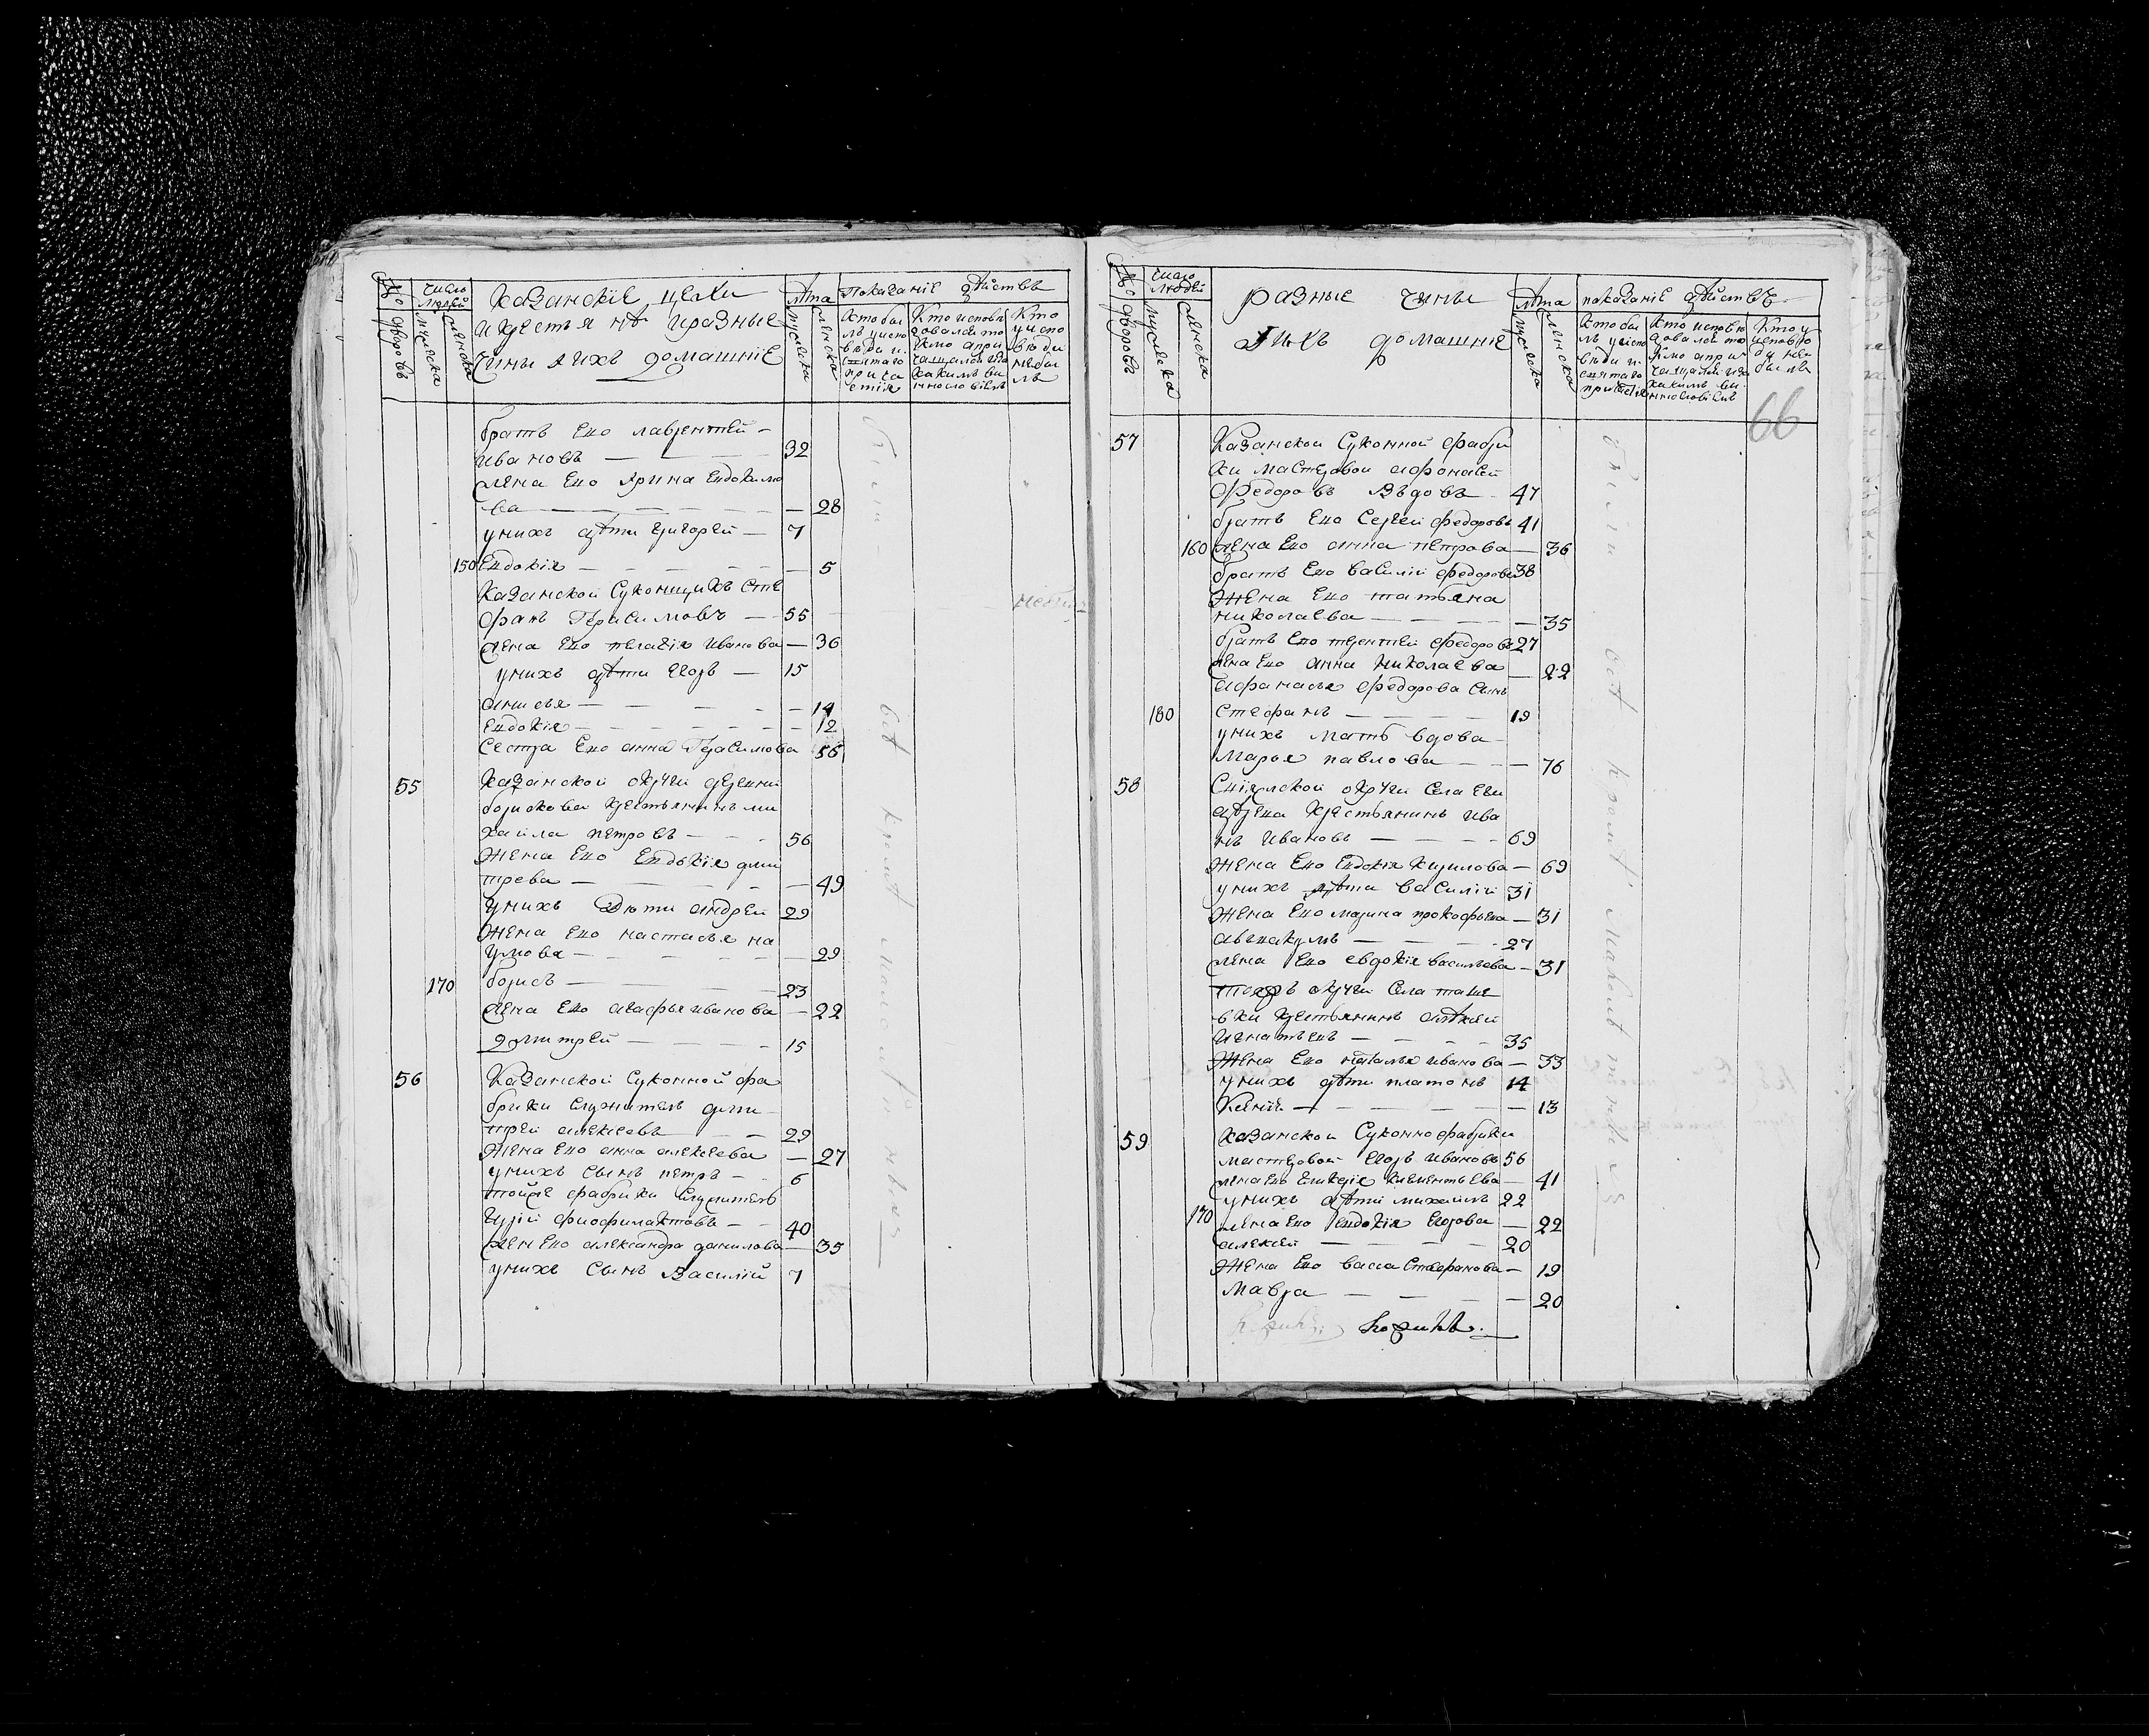 № дворовъ
число людей
мужеска
женска
Казанскiе цехи
и крестьянъ и разные
чины и ихъ домашнiе
лѣта
мужеска
женска
показанiе дѣйствъ
Кто бы
лъ у испо
вѣди и
святаго
прича
стiя
Кто исповѣ
довался то
кмо а при
чащался и за
какимъ ви
ннословiемъ
Кто
у испо
вѣди
не бы
лъ
братъ Его лаврентей —
Ивановъ — 32
жена Его Ирина Евдокимо
ва — 28
у нихъ дѣти григорей — 7
150 Евдокiя — 5
Казанской Суконщикъ Сте
фанъ Герасимовъ — 55
жена Его пелагiя Иванова — 36
у нихъ дѣти Егоръ — 15
анисья — 14
Евдокiя — 12
Сестра Его анна Герасимова 56
55 Казанской округи деревни
борисковы крестьянинъ ми
хайла петровъ — 56
Жена Его Евдокiя дми
трева — 49
у нихъ дѣти андрей 29
Жена Его настасья на
умова — 29
170 борисъ — 23
жена Его агафья иванова — 22
дмитрей — 15
56 Казанской Суконной фа
брики служитель дми
трей алексеевъ — 29
Жена Его анна алексеева — 27
у нихъ сынъ петръ — 6
тойже фабрики служитель
Гурiй фиофилактовъ — 40
жен Его александра данилова — 35
у нихъ Сынъ Василiй 7
№ дворовъ
число людей
мужеска
женска
разные чины
и ихъ домашнiе
лѣта
мужеска
женска
показанiе дѣйствъ
Кто бы
лъ у испо
вѣди и
святаго
причастiя
Кто исповѣ
довался то
кмо а при
чащался и за
какимъ ви
ннословiемъ
Кто у
исповѣ
ди не
былъ
66
57 Казанской Суконной фабри
ки мастеровой афонасей
Федоровъ вдовъ — 47
братъ Его Сергей федоровъ 41
160 жена Его анна петрова — 36
братъ Его василiй федоровъ 38
Жена Его татьяна
николаева — 35
братъ Его терентей федоровъ 27
жена Его анна николаева — 22
афанасья федорова сынъ
180 Стефанъ — 19
у нихъ мать вдова
Марья павлова — 76
58 Свiяжской округи Села
крестьянинъ ива
нъ ивановъ — 69
Жена Его Евдокiя кирилова — 69
у нихъ дѣти василiй 31
Жена Его марина прокофьева — 31
аввакумъ — 27
жена Его евдокiя васильева — 31
тояжъ округи Села таше
вки крестьянинъ алѣксей
игнатьевъ — 35
Жена Его наталья иванова — 33
у нихъ дѣти платонъ 14
— 13
59 Казанской Суконно фабрики
мастеровой Егоръ ивановъ 56
жена Его климентьева — 41
у нихъ дѣти михаилъ 22
170 жена Его Евдокiя Егорова — 22
алексей — 20
Жена Его васса Стефанова — 19
Мавра — 20